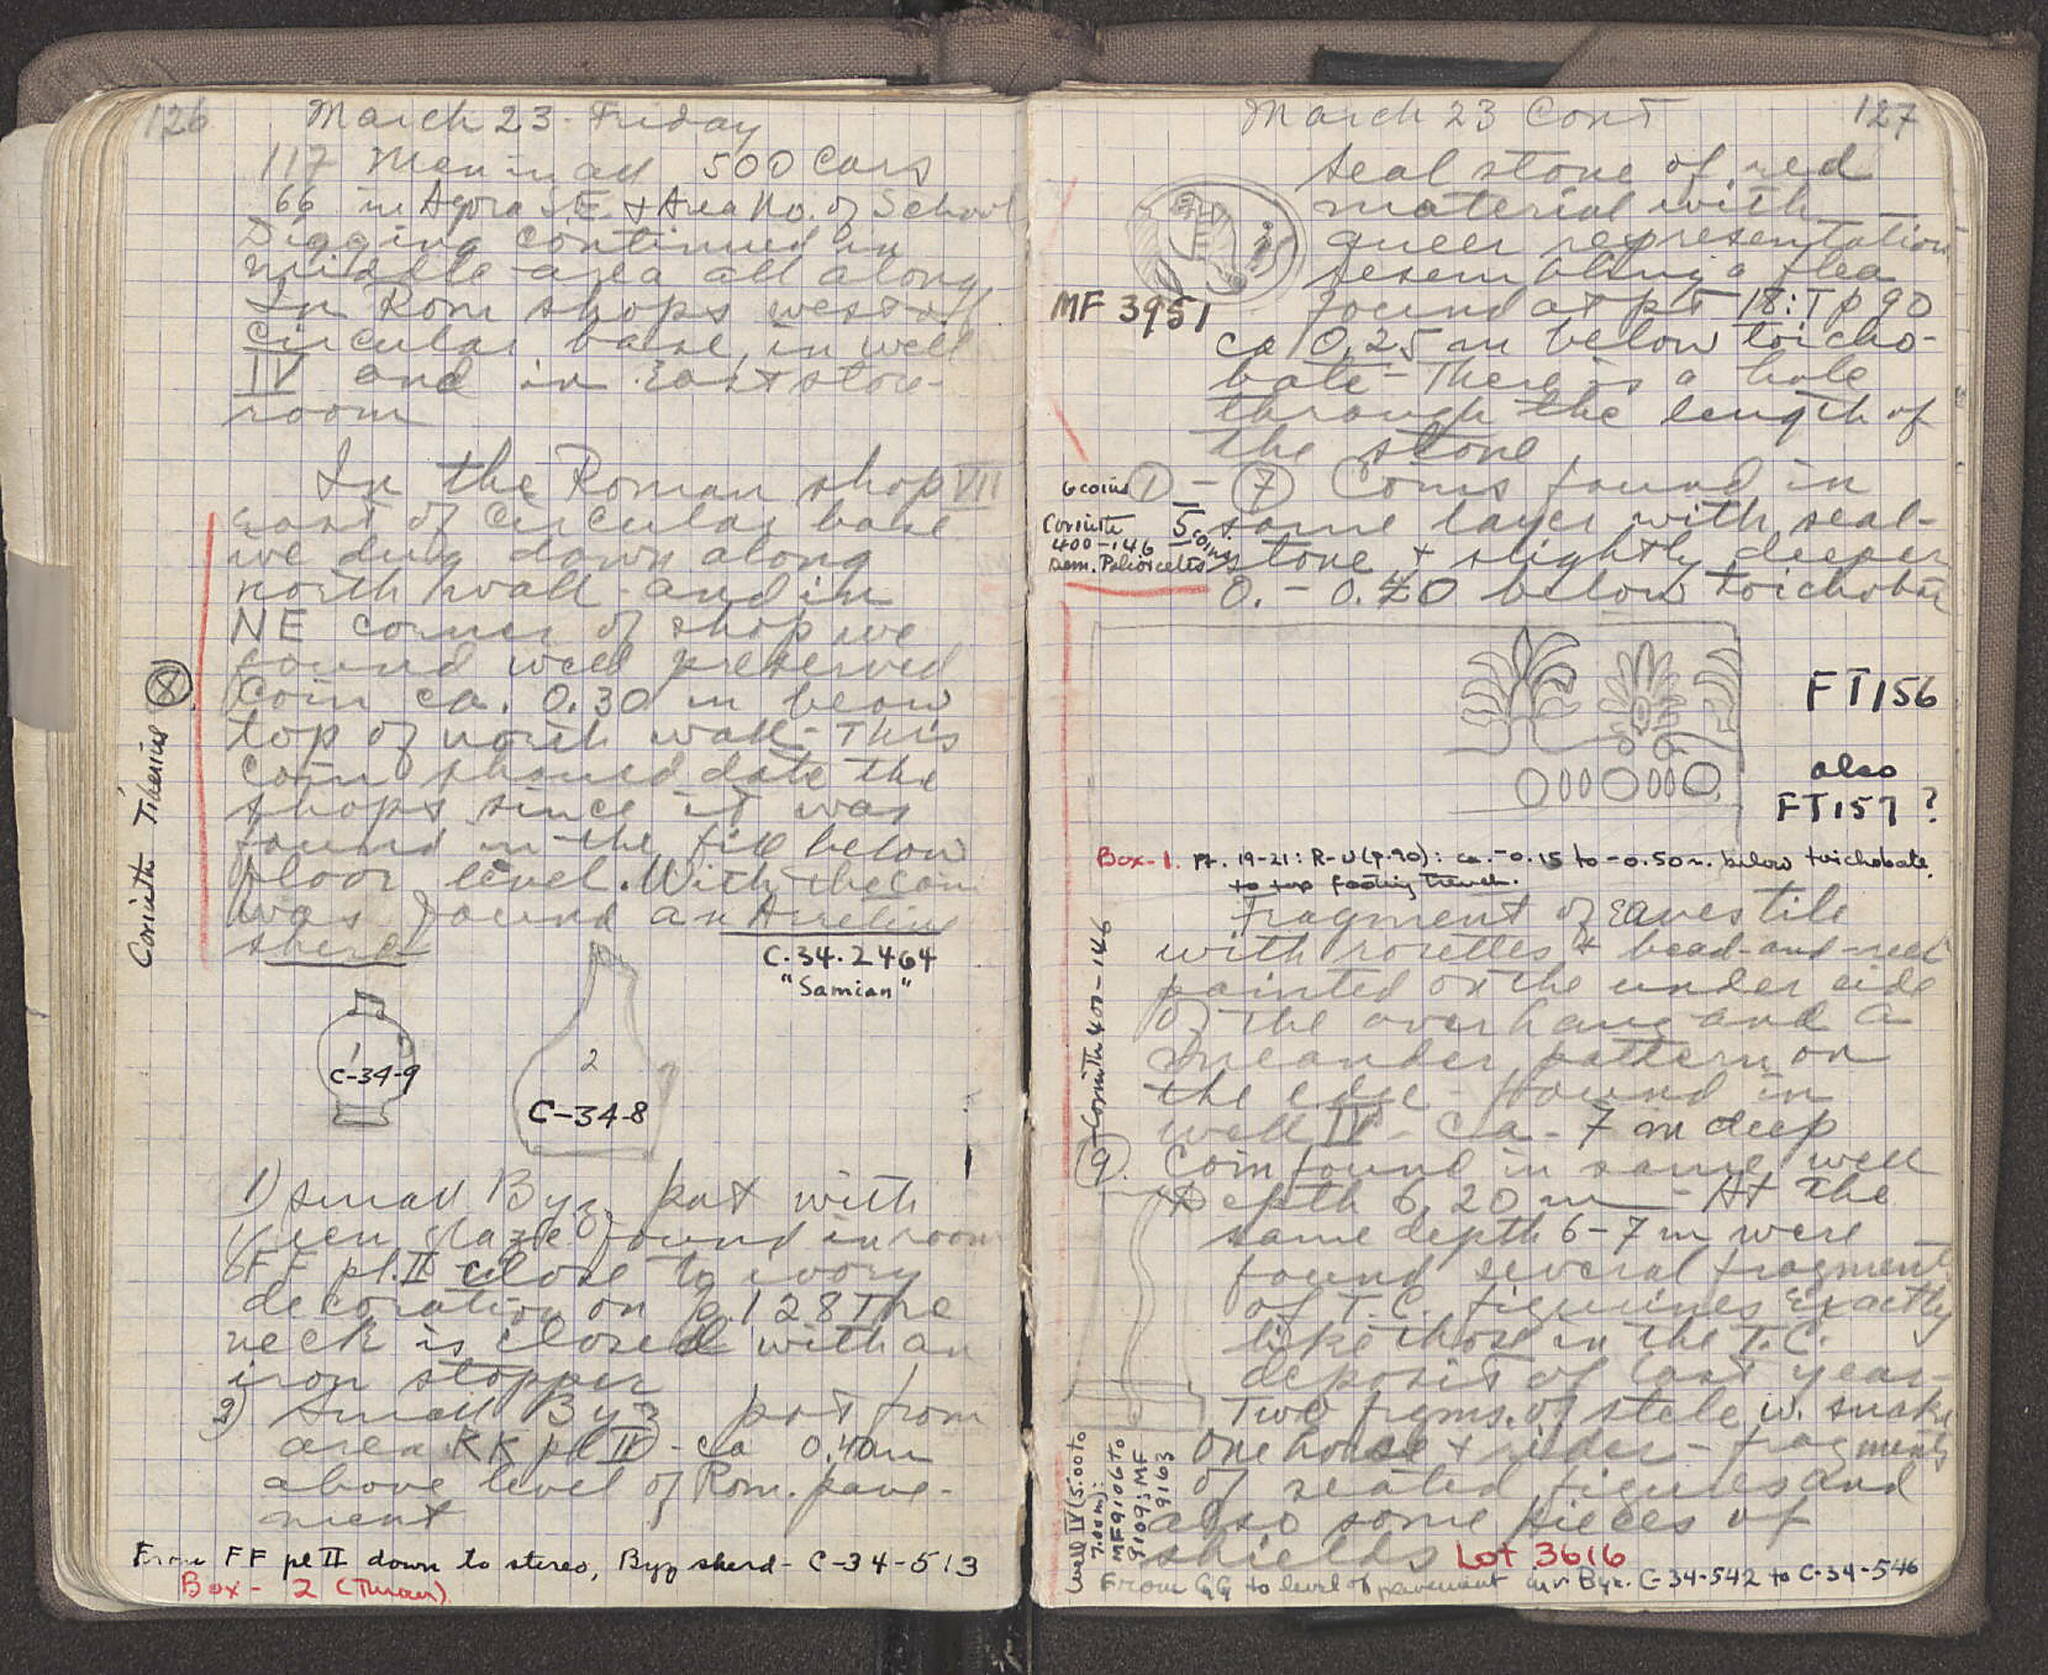 126
March 23 - Friday
117 Men in all 500 Cars
66 in Agora S.E. & Area No. of School
Digging continued in
middle area all along
In Rom shops west of
circular base, in well
IV and in East store-
room
In the Roman shop VII
East of circular base
we dug down along
north wall and in
NE corner of shop we
found well preserved
Coin ca. 0.30 m below
top of north wall - This
coin should date the
shops since it was
found in the fill below
floor level. With the coin
was found an Arretine
sherd
Corinth Tiberius 8
C.34.2464
"Samian"
1
C-34-9
2
C-34-8
1) small Byz pot with
green glaze found in room
FF pl. II close to ivory
decoration on p. 128 The
neck is closed with an
iron stopper
2) small Byz pot from
area KK pl II - ca 0.40 m
above level of Rom. pave-
ment
From FF pl II down to stereo, Byz sherd - C-34-513
Box - 2
March 23 Cont
127
seal stone of red
material with
queer representation
resembling a flea
found at pt 18:T p 90
MF 3951
ca 0.25 m below toicho-
bate - There is a hole
through the length of
the stone
1 - 7 Coins found in
same layer with seal-
stone & slightly deeper
0. - 0.40 below toichobate
6 coins
Corinth
400-146
Dem. Poliorcetes
5 coins
FT156
also
FT157 ?
Box-1. Pt. 19-21: R-U (p. 90): ca. -0.15 to -0.50 m. below toichobate.
to top footing trench.
Fragment of eaves tile
with rosettes & bead-and-reel
painted on the under side
of the overhang and a
meander pattern on
the edge - found in
well IV - ca - 7 m deep
9 - Corinth 400-146
Coin found in same well
Depth 6.20 m - At the
same depth 6-7 m were
found several fragments
of T.C. figurines exactly
like those in the T.C.
deposit of last year -
Two frgms. of stele w. snake
One horse & rider - fragments
of seated figures and
also some pieces of
shields Lot 3616
Well IV (5.00 to
7.00 m):
MF 9106 to
9109; MF
9163
From GG to level of pavement inv. Byz. C-34-542 to C-34-546